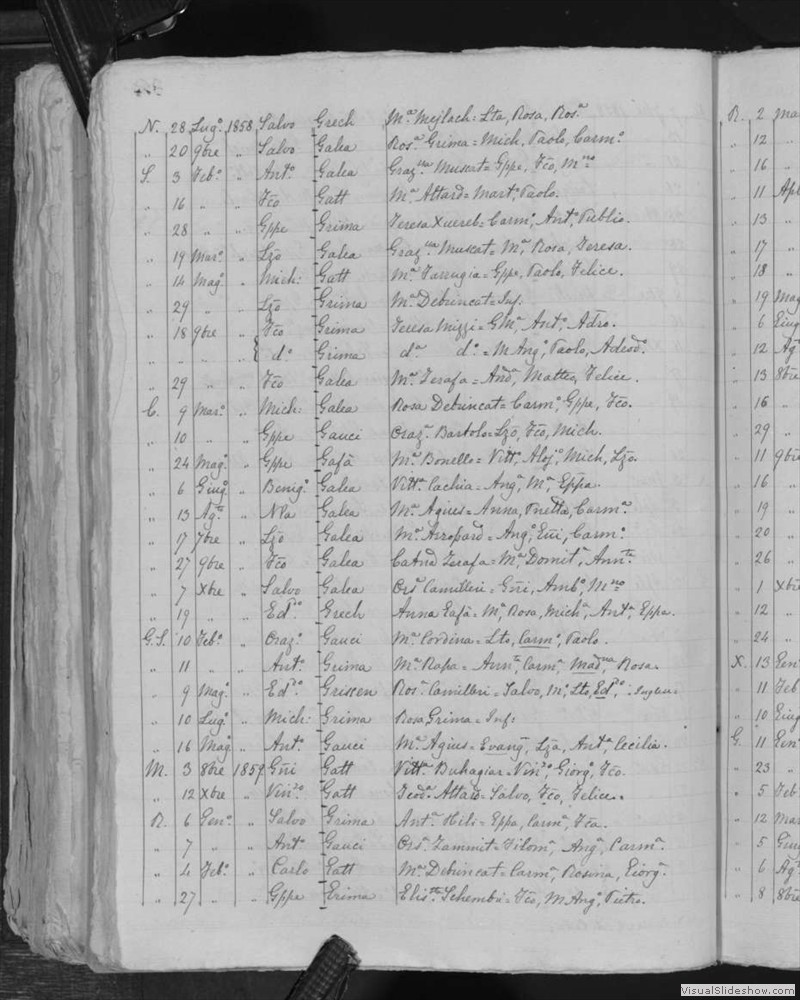 N. 28 Lug.º 1858 Salvo Grech Mª Mejlach = Lta, Rosa, Rosª
„ 20 9bre „ Salvo Galea Rosª Grima = Mich, Paolo, Carmº
S. 3 Febº „ Antº Galea Grazna Muscat = Gppe, Fco, Mno
„ 16 „ „ Fco Gatt Mª Attard = Martº, Paolo.
„ 28 „ „ Gppe Grima Teresa Xuereb = Carmº, Antº, Publio.
„ 19 Marº „ Lzo Galea Grazna Muscat = Mª, Rosa, Teresa.
„ 14 Magº „ Mich: Gatt Mª Farrugia = Gppe, Paolo, Felice.
„ 29 „ „ Lzo Grima Mª Debrincat = Inf.
„ 18 9bre „ Fco Grima Teresa Mizzi = GMª, Antº, Adro.
„ „ „ „ dº Grima dª dº = M Angº, Paolo, Adeodº
„ 29 „ „ Fco Galea Mª Zerafa = Andª, Matteo, Felice.
C. 9 Marº „ Mich: Galea Rosa Debrincat = Carmº, Gppe, Fco.
„ 10 „ „ Gppe Gauci Orazª Bartolo = Lzo, Fco, Mich.
„ 24 Magº „ Gppe Gafà Mª Bonello = Vittº, Alojº, Mich, Lzo.
„ 6 Giugº „ Benigº Galea Vittª Cachia = Angª, Mª Eppa.
„ 13 Agto „ Nla Galea Mª Agius = Anna, Pnetta, Carmª
„ 17 7bre „ Lzo Galea Mª Azzopard = Angº, Gni, Carmº
„ 27 9bre „ Fco Galea Catnd Zerafa = Mª Domitª, Annta
„ 7 Xbre „ Salvo Galea Orsª Camilleri = Gni, Ambº, Mno
„ 19 „ Eddo Grech Anna Gafà = Mª, Rosa, Michª, Antª, Eppa.
G.S. 10 Febº „ Orazº Gauci Mª Cordina = Lto, Carmº, Paolo.
„ 11 „ „ Antº Grima Mª Rapa = Annta, Carmª, Madna, Rosa.
„ 9 Magº „ Eddo Grissen Rosª Camilleri = Salvo, Mº, Lto, Eddo,
„ 10 Lugº „ Mich: Grima Rosa Grima = Inf:
„ 16 Magº „ Antº Gauci Mª Agius = Evangª, Lza, Antª, Cecilia.
M. 3 8bre 1859 Gni Gatt Vittª Buhagiar = Vinzo, Giorgº, Fco.
„ 12 Xbre „ Vinzo Gatt Teodª Attard = Salvo, Fco, Felice.
R. 6 Genº „ Salvo Grima Antª Hili = Eppa, Carmª, Fca.
„ 7 „ „ Antº Gauci Orsª Zammit = Filomª, Angª, Carmª
„ 4 Febº „ Carlo Gatt Mª Debrincat = Carmª, Rosina, Giorgª
„ 27 „ „ Gppe Grima Elista Schembri = Fco, M Angº, Pietro.
R. 2
„ 12 „
„ 16 „
„ 11 Apr
„ 13 „
„ 17 „
„ 18 „
„ 19 Mag
„ 6 Giug
„ 12 Agº
„ 13 8bre
„ 16 „
„ 29 „
„ 11 9bre
„ 16 „
„ 19 „
„ 20 „
„ 26 „
„ 1 Xbre
„ 12 „
„ 24 „
X. 13 Gen
„ 11 Feb
„ 10 Giug
G. 11 Gen
„ 23 „
„ 5 Feb
„ 12 Mar
„ 5 Giug
„ 6 Agº
„ 8 8bre
VisualSlideshow.com